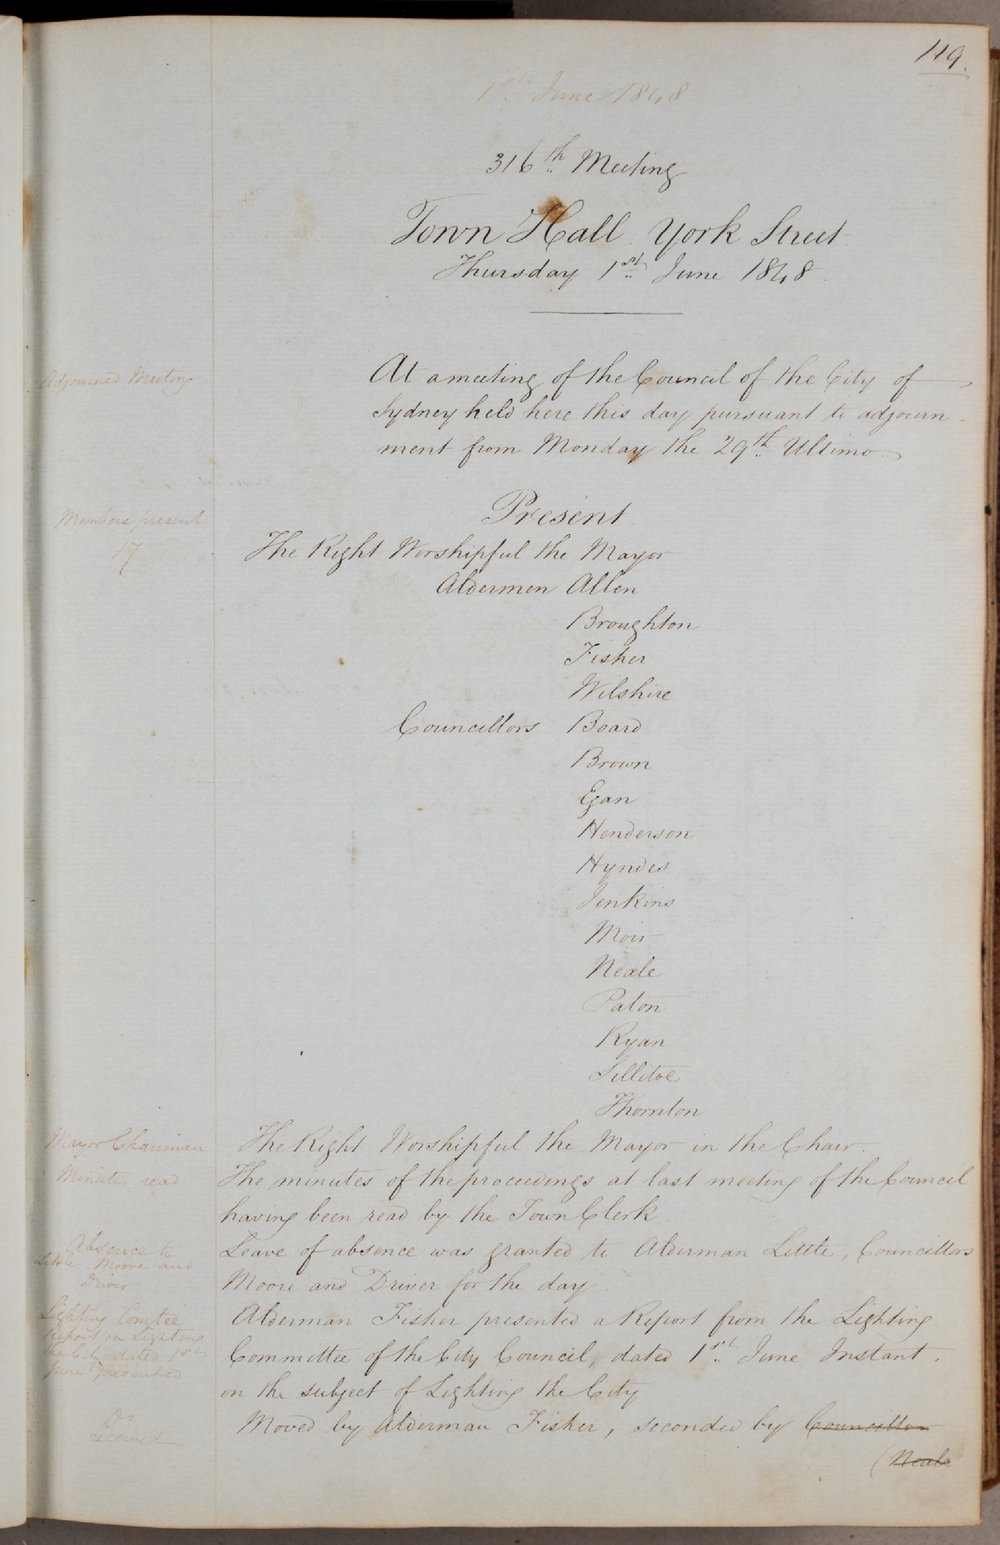 119.
1st June 1848
316th Meeting
Town Hall York Street
Thursday 1st June 1848
Adjourned Meeting
At a meeting of the Council of the City of
Sydney held here this day pursuant to adjourn
ment from Monday the 29th Ultimo
Members present
17
Present
The Right Worshipful the Mayor
Aldermen Allen
Broughton
Fisher
Wilshire
Councillors Board
Brown
Egan
Henderson
Hyndes
Jenkins
Moir
Neale
Paton
Ryan
Silletoe
Thornton
Mayor Chairman
The Right Worshipful the Mayor in the Chair.
Minutes read
The minutes of the proceedings at last meeting of the Council
having been read by the Town Clerk
Absence to
Little, Moore and
Driver
Leave of absence was granted to Alderman Little, Councillors
Moore and Driver for the day.
Lighting Comtee
Report on Lighting
the City dated 1st
June presented
Alderman Fisher presented a Report from the Lighting
Committee of the City Council, dated 1st June Instant.
on the subject of Lighting the City
Do
received
Moved by Alderman Fisher, seconded by Councillor
(Neale